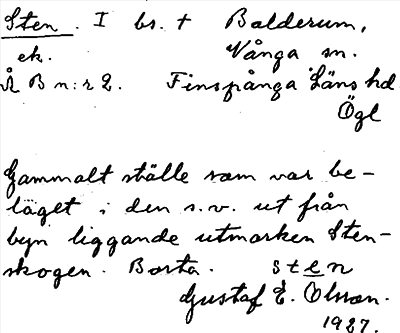 Sten. I br. t Balderum,
ek. Vånga sn.
Å B n:r 2. Finspånga Läns hd
Ögl
Gammalt ställe som var be-
läget i den s.v. ut från
byn liggande utmarken Sten-
skogen. Borta. sten
Gustaf E. Olsson.
1927.